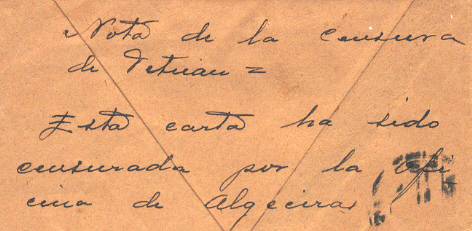 "Nota de la Censura
de Tetuan =
Esta carta ha sido
censurada por la ofi
cina de Algeciras